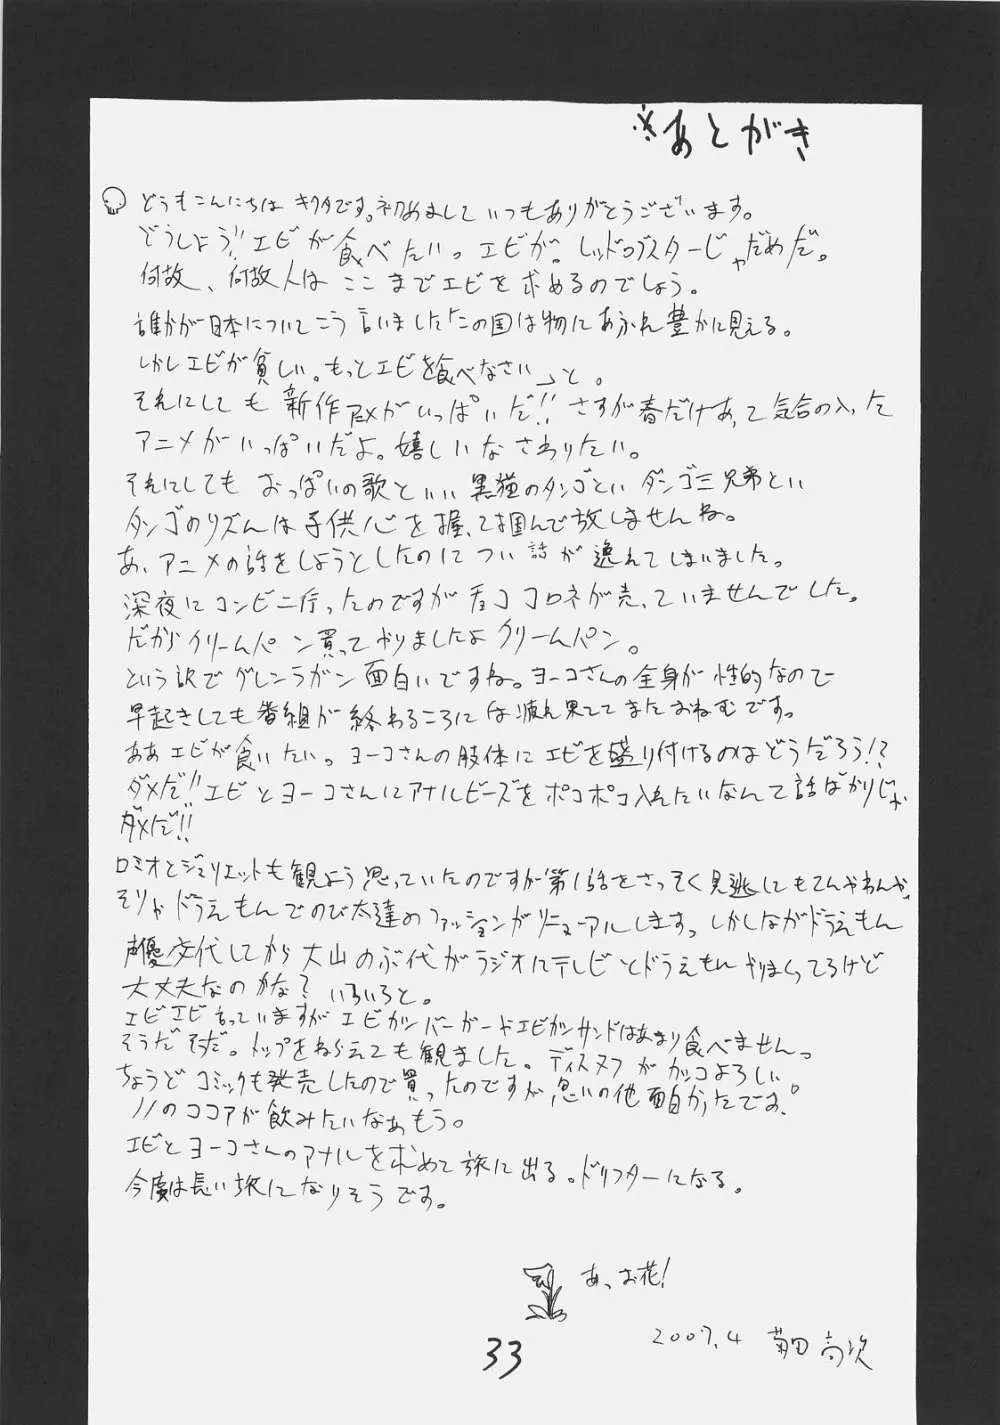 ※あとがき
どうもこんにちは キクタです。初めまして いつもありがとうございます。
どうしよう!!エビが食べたいっ エビが。レッドロブスターじゃだめだ。
何故、何故人は ここまでエビを求めるのでしょう。
誰かが日本についてこう言いました「この国は物にあふれ豊かに見える。
しかしエビが貧しい。もっとエビを食べなさい」と。
それにしても 新作アニメがいっぱいだ!! さすが春だけあって気合の入った
アニメがいっぱいだよ。嬉しいな さわりたい。
それにしても おっぱいの歌といい 黒猫のタンゴといい ダンゴ三兄弟といい
タンゴのリズムは子供心を握って掴んで放しませんね。
あ、アニメの話をしようとしたのに つい話が逸れてしまいました。
深夜にコンビニ行ったのですがチョココロネが売っていませんでした。
だからクリームパン買ってやりましたよ クリームパン。
という訳でグレンラガン面白いですね。ヨーコさんの全身が性的なので
早起きしても番組が終わるころには疲れ果ててまたおねむです。
ああエビが食いたい。ヨーコさんの肢体にエビを盛り付けるのはどうだろう!?
ダメだ!!エビとヨーコさんにアナルビーズをポコポコ入れたいなんて話ばかりじゃ
ダメだ!!
ロミオとジュリエットも観よう思っていたのですが第1話をさっそく見逃してもてんやわんや、
そりゃドラえもんでのび太達のファッションがリニューアルしますっ しかしながらドラえもん
声優交代してから大山のぶ代がラジオにテレビとドラえもんやりまくってるけど
大丈夫なのかな? いろいろと。
エビエビ言っていますがエビカツバーガーやエビカツサンドはあまり食べませんっ
そうだそうだ。トップをねらえても観ました。ディスヌフがカッコよろしい
ちょうどコミックも発売したので買ったのですが思いの他面白かったです。
ノノのココアが飲みたいなぁもう。
エビとヨーコさんのアナルを求めて旅に出る。ドリフターになる。
今度は長い旅になりそうです。
あっお花!
2007.4 菊田高次
33